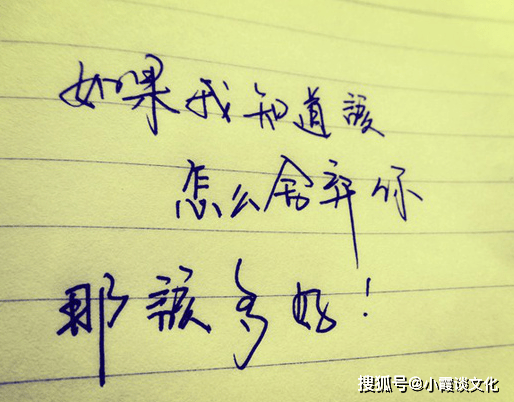 如果我知道該
怎么舍弃你
那該多好!
搜狐号@小霞谈文化